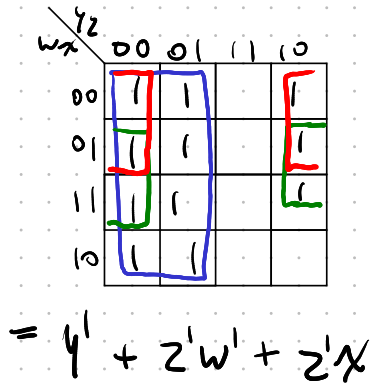 yz
wx 00 01 11 10
00 1 1 1
01 1 1 1
11 1 1 1
10 1 1
= y' + z'w' + z'x